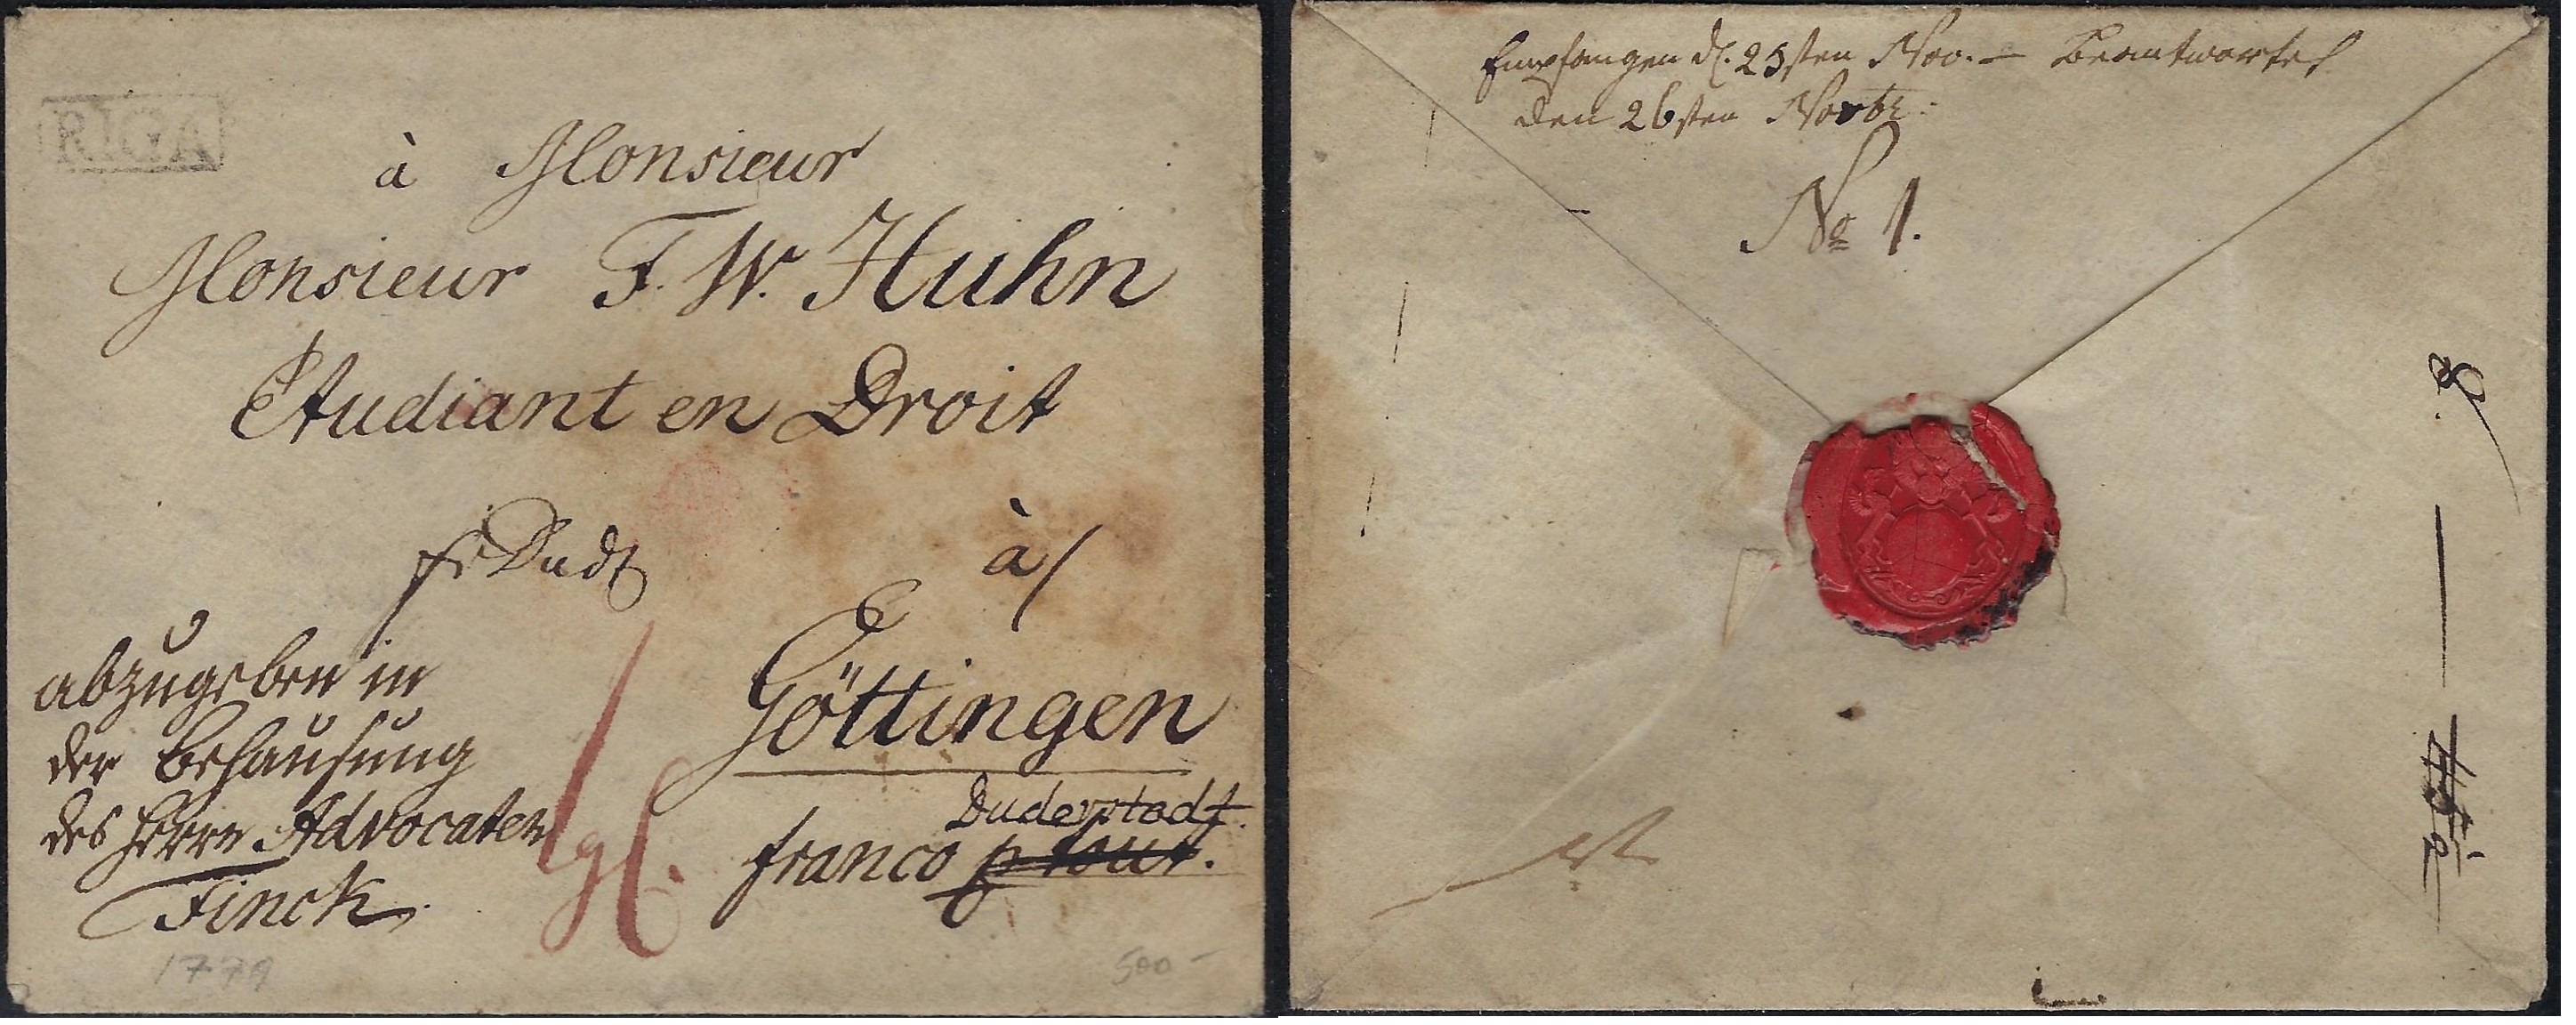 RIGA
à Monsieur
Monsieur F. W. Huhn
Etudiant en Droit
fr Dudt
à/
Göttingen
abzugeben in
der Behausung
des Herrn Advocaten
Finck
Duderstadt.
franco p tout.
1779
500 -
Empfangen d. 25sten Nov. – Beantwortet
den 26sten Novbr.
No 1.